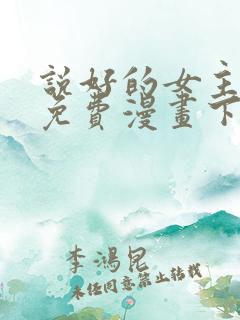 說好的女主
免費漫畫下
李鴻昆
未经同意禁止转载